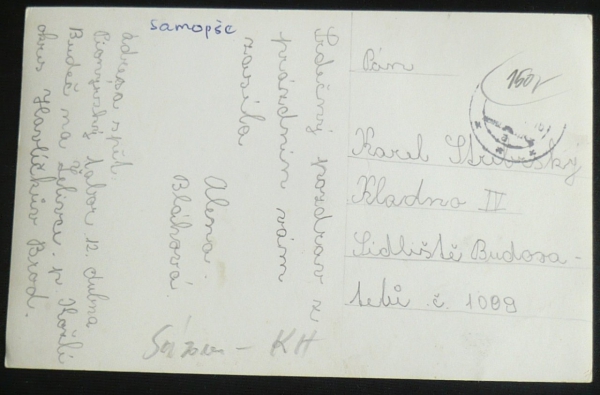 samopše
Srdečný pozdrav z
prázdnin vám
zasílá
Alena
Bláhová.
Adresa zpět.
Pionýrský tábor 12. dubna
Budeč na Želivce. p. Košetí
okres Havlíčkův Brod.
Pán
Karel Stříbrský
Kladno IV
Sidliště Budova-
telů č. 1099
150,-
Sázava - KH